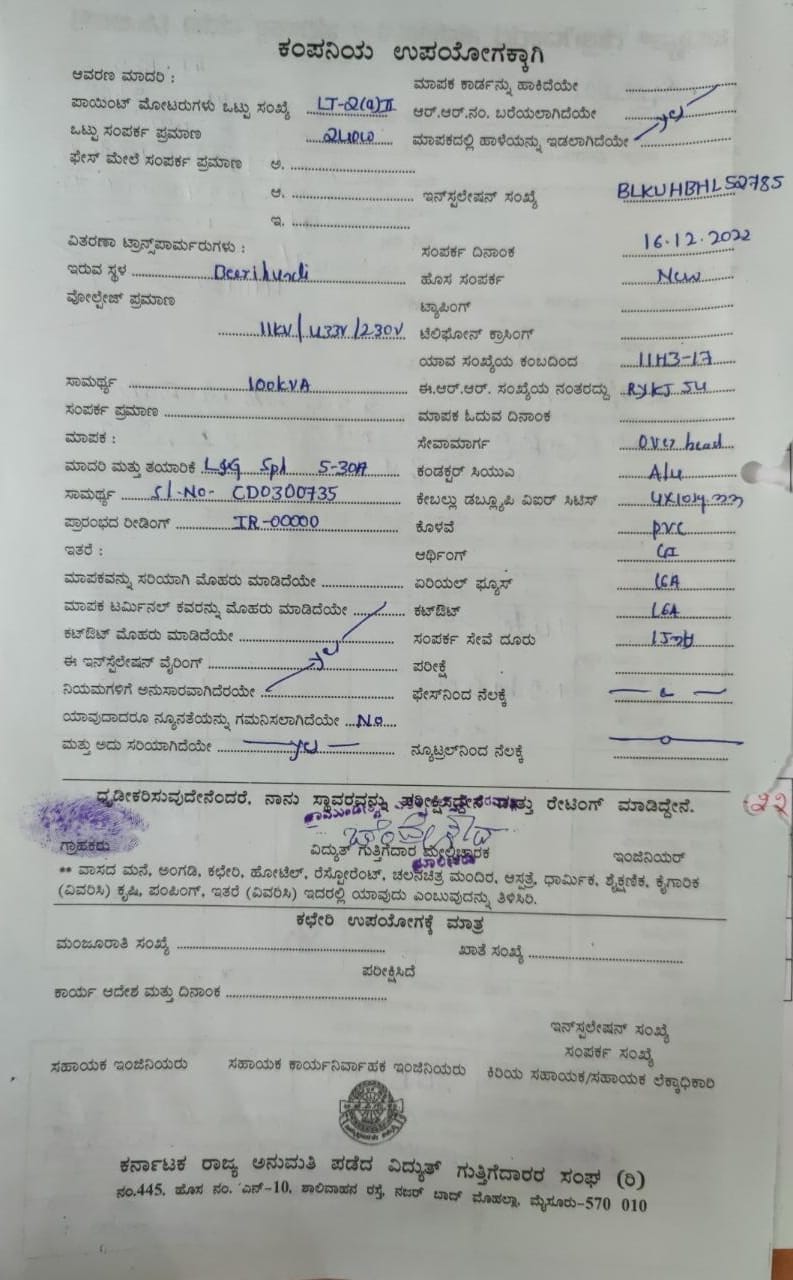 ಕಂಪನಿಯ ಉಪಯೋಗಕ್ಕಾಗಿ
ಆವರಣ ಮಾದರಿ : ಮಾಪಕ ಕಾರ್ಡನ್ನು ಹಾಕಿದೆಯೇ
ಪಾಯಿಂಟ್ ಮೋಟರುಗಳು ಒಟ್ಟು ಸಂಖ್ಯೆ LT-2(a)II ಆರ್.ಆರ್.ನಂ. ಬರೆಯಲಾಗಿದೆಯೇ yes
ಒಟ್ಟು ಸಂಪರ್ಕ ಪ್ರಮಾಣ ಮಾಪಕದಲ್ಲಿ ಹಾಳೆಯನ್ನು ಇಡಲಾಗಿದೆಯೇ
ಫೇಸ್ ಮೇಲೆ ಸಂಪರ್ಕ ಪ್ರಮಾಣ ಅ.
ಆ. ಇನ್‌ಸ್ಟಲೇಷನ್ ಸಂಖ್ಯೆ BLKUHBHL52785
ಇ.
ವಿತರಣಾ ಟ್ರಾನ್ಸ್‌ಪಾರ್ಮರುಗಳು : ಸಂಪರ್ಕ ದಿನಾಂಕ 16.12.2022
ಇರುವ ಸ್ಥಳ Beerihundi ಹೊಸ ಸಂಪರ್ಕ New
ವೋಲ್ಟೇಜ್ ಪ್ರಮಾಣ ಟ್ಯಾಪಿಂಗ್
11KV/433V/230V ಟೆಲಿಫೋನ್ ಕ್ರಾಸಿಂಗ್
ಯಾವ ಸಂಖ್ಯೆಯ ಕಂಬದಿಂದ 11H3-17
ಸಾಮರ್ಥ್ಯ 100KVA ಈ.ಆರ್.ಆರ್. ಸಂಖ್ಯೆಯ ನಂತರದ್ದು
ಸಂಪರ್ಕ ಪ್ರಮಾಣ ಮಾಪಕ ಓದುವ ದಿನಾಂಕ
ಮಾಪಕ : ಸೇವಾಮಾರ್ಗ Over head
ಮಾದರಿ ಮತ್ತು ತಯಾರಿಕೆ L&G Spl 5-30A ಕಂಡಕ್ಟರ್ ಸಿಯುಎ Alu
ಸಾಮರ್ಥ್ಯ Sl-No- CD0300735 ಕೇಬಲ್ಲು ಡಬ್ಲ್ಯೂಪಿ ವಿಐರ್ ಸಿಟಿಸ್
ಪ್ರಾರಂಭದ ರೀಡಿಂಗ್ IR-00000 ಕೊಳವೆ PVC
ಇತರೆ : ಆರ್ಥಿಂಗ್ GI
ಮಾಪಕವನ್ನು ಸರಿಯಾಗಿ ಮೊಹರು ಮಾಡಿದೆಯೇ ಏರಿಯಲ್ ಫ್ಯೂಸ್ 16A
ಮಾಪಕ ಟರ್ಮಿನಲ್ ಕವರನ್ನು ಮೊಹರು ಮಾಡಿದೆಯೇ ಕಟ್‌ಔಟ್ 16A
ಕಟ್‌ಔಟ್ ಮೊಹರು ಮಾಡಿದೆಯೇ ಸಂಪರ್ಕ ಸೇವೆ ದೂರು
ಈ ಇನ್‌ಸ್ಟೆಲೇಷನ್ ವೈರಿಂಗ್ yes ಪರೀಕ್ಷೆ
ನಿಯಮಗಳಿಗೆ ಅನುಸಾರವಾಗಿದೆರಯೇ ಫೇಸ್‌ನಿಂದ ನೆಲಕ್ಕೆ
ಯಾವುದಾದರೂ ನ್ಯೂನತೆಯನ್ನು ಗಮನಿಸಲಾಗಿದೆಯೇ No
ಮತ್ತು ಅದು ಸರಿಯಾಗಿದೆಯೇ yes ನ್ಯೂಟ್ರಲ್‌ನಿಂದ ನೆಲಕ್ಕೆ
ಧೃಡೀಕರಿಸುವುದೇನೆಂದರೆ, ನಾನು ಸ್ಥಾವರವನ್ನು ಪರೀಕ್ಷಿಸಿದ್ದೇನೆ ಮತ್ತು ರೇಟಿಂಗ್ ಮಾಡಿದ್ದೇನೆ.
22
ಗ್ರಾಹಕರು ವಿದ್ಯುತ್ ಗುತ್ತಿಗೆದಾರ ಮೇಲ್ವಿಚಾರಕ ಇಂಜಿನಿಯರ್
** ವಾಸದ ಮನೆ, ಅಂಗಡಿ, ಕಛೇರಿ, ಹೋಟೆಲ್, ರೆಸ್ಟೋರೆಂಟ್, ಚಲನಚಿತ್ರ ಮಂದಿರ, ಆಸ್ಪತ್ರೆ, ಧಾರ್ಮಿಕ, ಶೈಕ್ಷಣಿಕ, ಕೈಗಾರಿಕ
(ವಿವರಿಸಿ) ಕೃಷಿ, ಪಂಪಿಂಗ್, ಇತರೆ (ವಿವರಿಸಿ) ಇದರಲ್ಲಿ ಯಾವುದು ಎಂಬುವುದನ್ನು ತಿಳಿಸಿರಿ.
ಕಛೇರಿ ಉಪಯೋಗಕ್ಕೆ ಮಾತ್ರ
ಮಂಜೂರಾತಿ ಸಂಖ್ಯೆ ಖಾತೆ ಸಂಖ್ಯೆ
ಪರೀಕ್ಷಿಸಿದೆ
ಕಾರ್ಯ ಆದೇಶ ಮತ್ತು ದಿನಾಂಕ
ಇನ್‌ಸ್ಟಲೇಷನ್ ಸಂಖ್ಯೆ
ಸಂಪರ್ಕ ಸಂಖ್ಯೆ
ಸಹಾಯಕ ಇಂಜಿನಿಯರು ಸಹಾಯಕ ಕಾರ್ಯನಿರ್ವಾಹಕ ಇಂಜಿನಿಯರು ಕಿರಿಯ ಸಹಾಯಕ/ಸಹಾಯಕ ಲೆಕ್ಕಾಧಿಕಾರಿ
ಕರ್ನಾಟಕ ರಾಜ್ಯ ಅನುಮತಿ ಪಡೆದ ವಿದ್ಯುತ್ ಗುತ್ತಿಗೆದಾರರ ಸಂಘ (ರಿ)
ನಂ.445, ಹೊಸ ನಂ. ಎನ್-10, ಶಾಲಿವಾಹನ ರಸ್ತೆ, ನಜರ್ ಬಾದ್ ಮೊಹಲ್ಲಾ, ಮೈಸೂರು-570 010